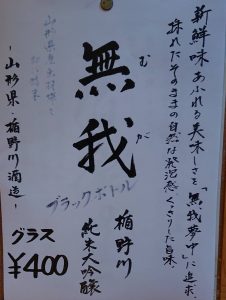 新鮮味あふれる美味しさを「無我夢中」に追求、
採れたそのままの自然な発泡感。くっきりした旨味。
無我
むが
ブラックボトル
楯野川
純米大吟醸
山形県
-山形県・楯野川酒造-
グラス
¥400